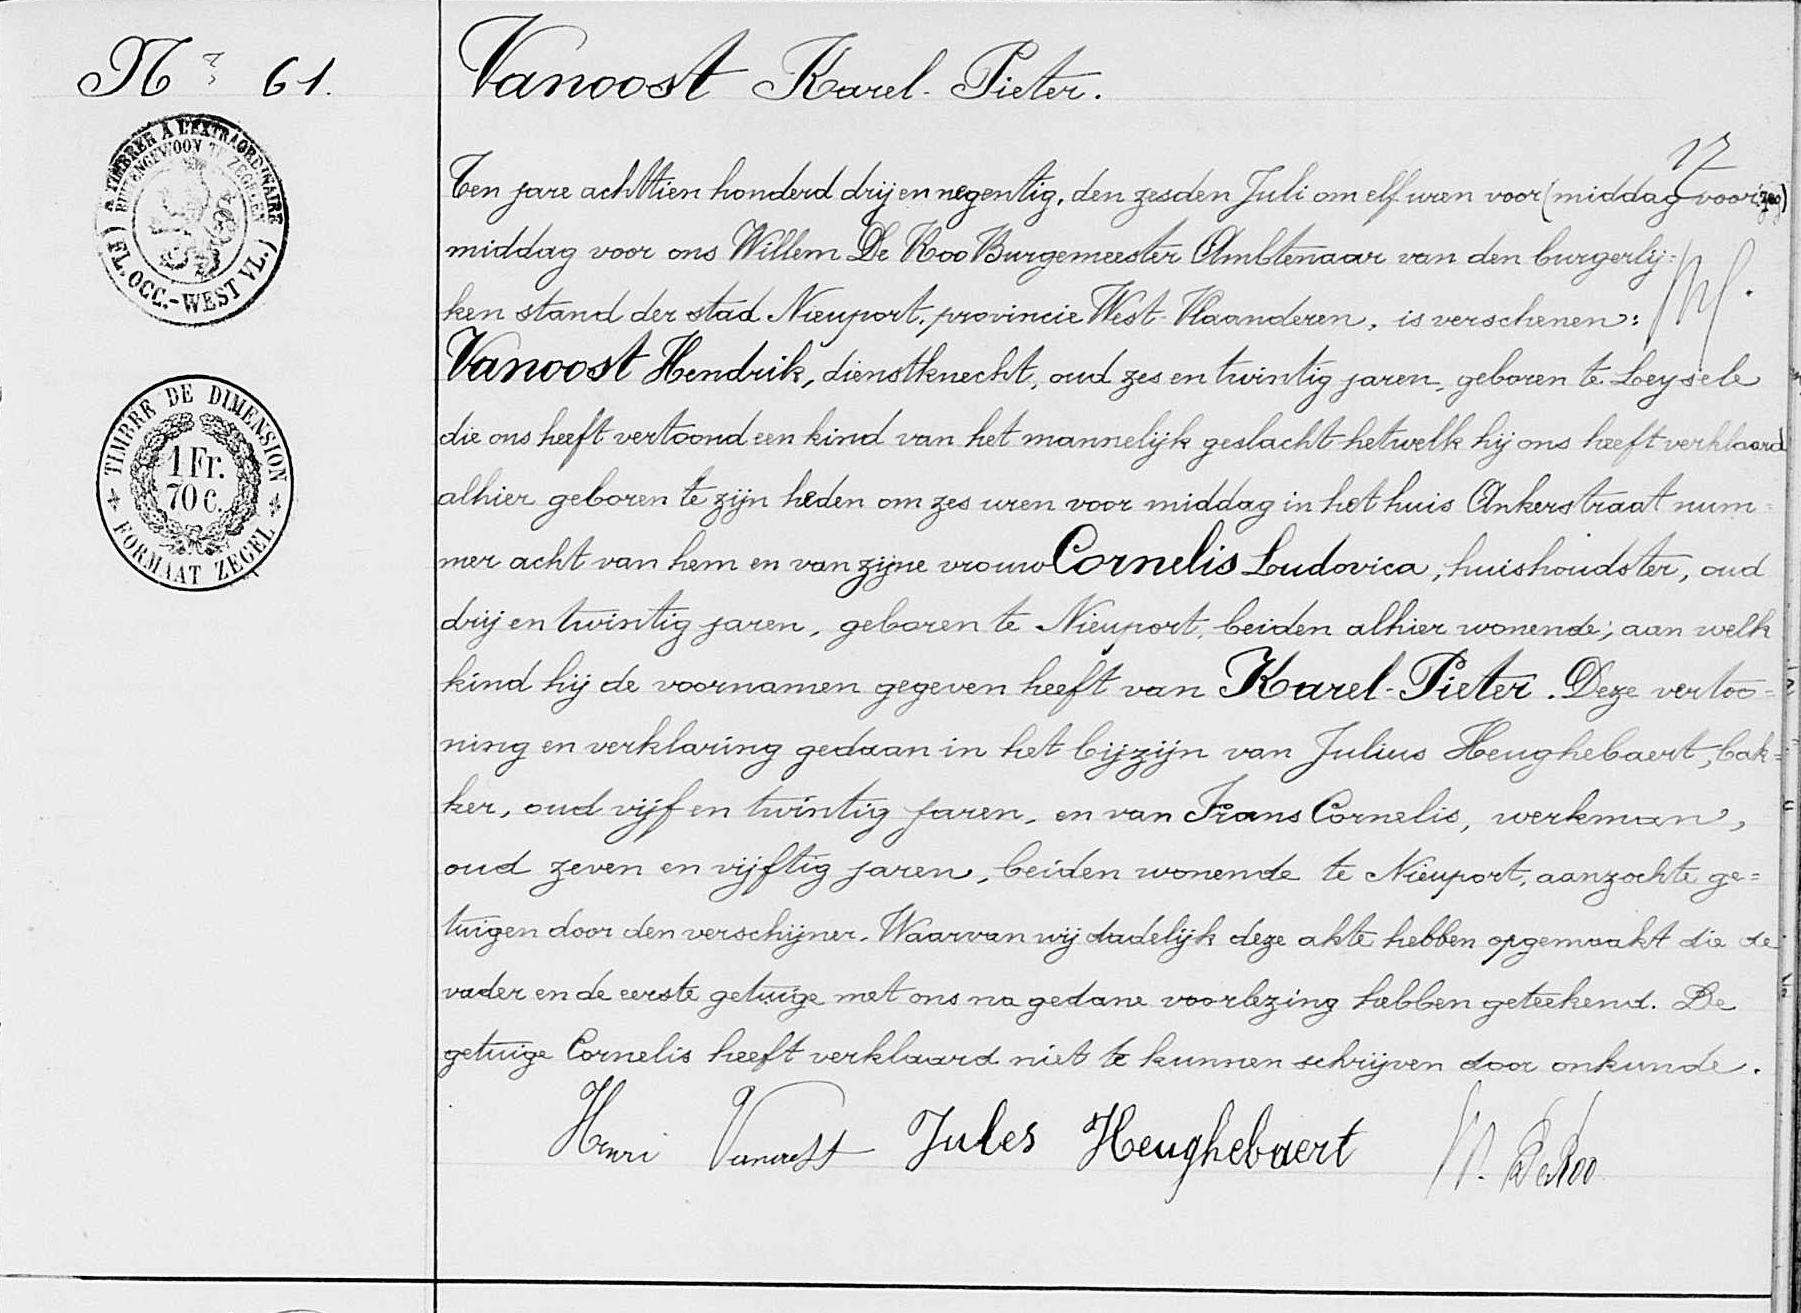 Nr 61.
Vanoost Karel-Pieter.
17
A TIMBRER A L'EXTRAORDINAIRE
BUITENGEWOON TE ZEGELEN
(FL. OCC.-WEST VL.)
TIMBRE DE DIMENSION
1 Fr.
70 c.
FORMAAT ZEGEL
Ten jare achttien honderd drij en negentig, den zesden Juli om elf uren voor (middag voor
middag voor ons Willem De Roo Burgemeester Ambtenaar van den burgerlij=
ken stand der stad Nieuport, provincie West-Vlaanderen, is verschenen:
Vanoost Hendrik, dienstknecht, oud zes en twintig jaren, geboren te Leysele
die ons heeft vertoond een kind van het mannelijk geslacht hetwelk hij ons heeft verklaard
alhier geboren te zijn heden om zes uren voor middag in het huis Ankerstraat num=
mer acht van hem en van zijne vrouw Cornelis Ludovica, huishoudster, oud
drij en twintig jaren, geboren te Nieuport, beiden alhier wonende; aan welk
kind hij de voornamen gegeven heeft van Karel-Pieter. Deze vertoo=
ning en verklaring gedaan in het bijzijn van Julius Heughebaert, bak=
ker, oud vijf en twintig jaren, en van Frans Cornelis, werkman,
oud zeven en vijftig jaren, beiden wonende te Nieuport, aanzochte ge=
tuigen door den verschijner. Waarvan wij dadelijk deze akte hebben opgemaakt die de
vader en de eerste getuige met ons na gedane voorlezing hebben geteekend. De
getuige Cornelis heeft verklaard niet te kunnen schrijven door onkunde.
Henri Vanoost Jules Heughebaert W. De Roo